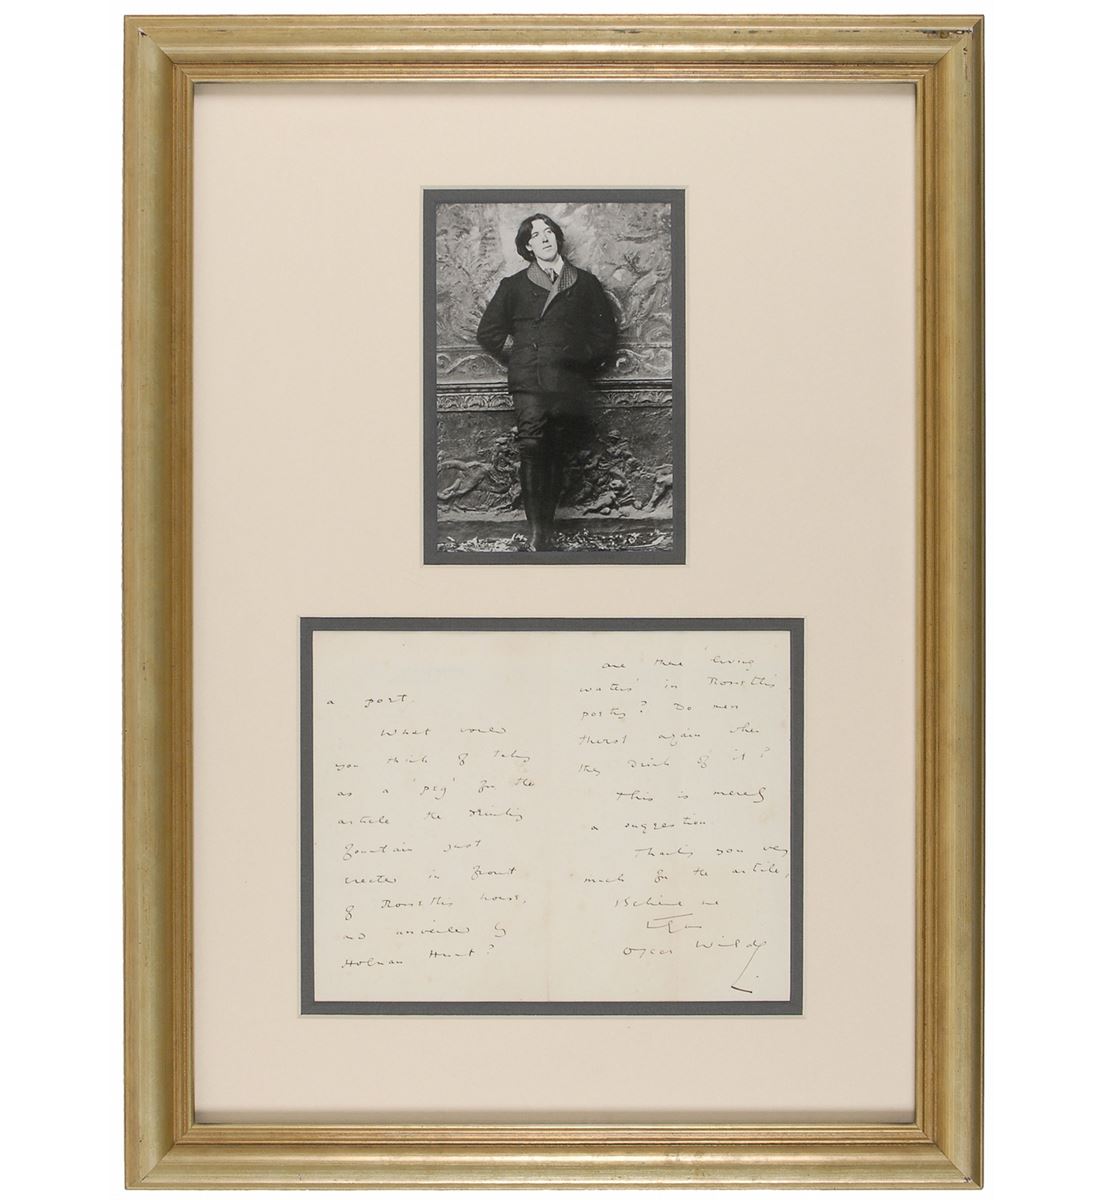 a poet.
What would
you think of taking
as a 'peg' for the
article the Drinking
fountain just
erected in front
of Rossetti's house,
and unveiled by
Holman Hunt?
are there 'living
waters' in Rossetti's
poetry? Do men
thirst again when
they drink of it?
This is merely
a suggestion.
Thanking you very
much for the article,
Believe me
Oscar Wilde